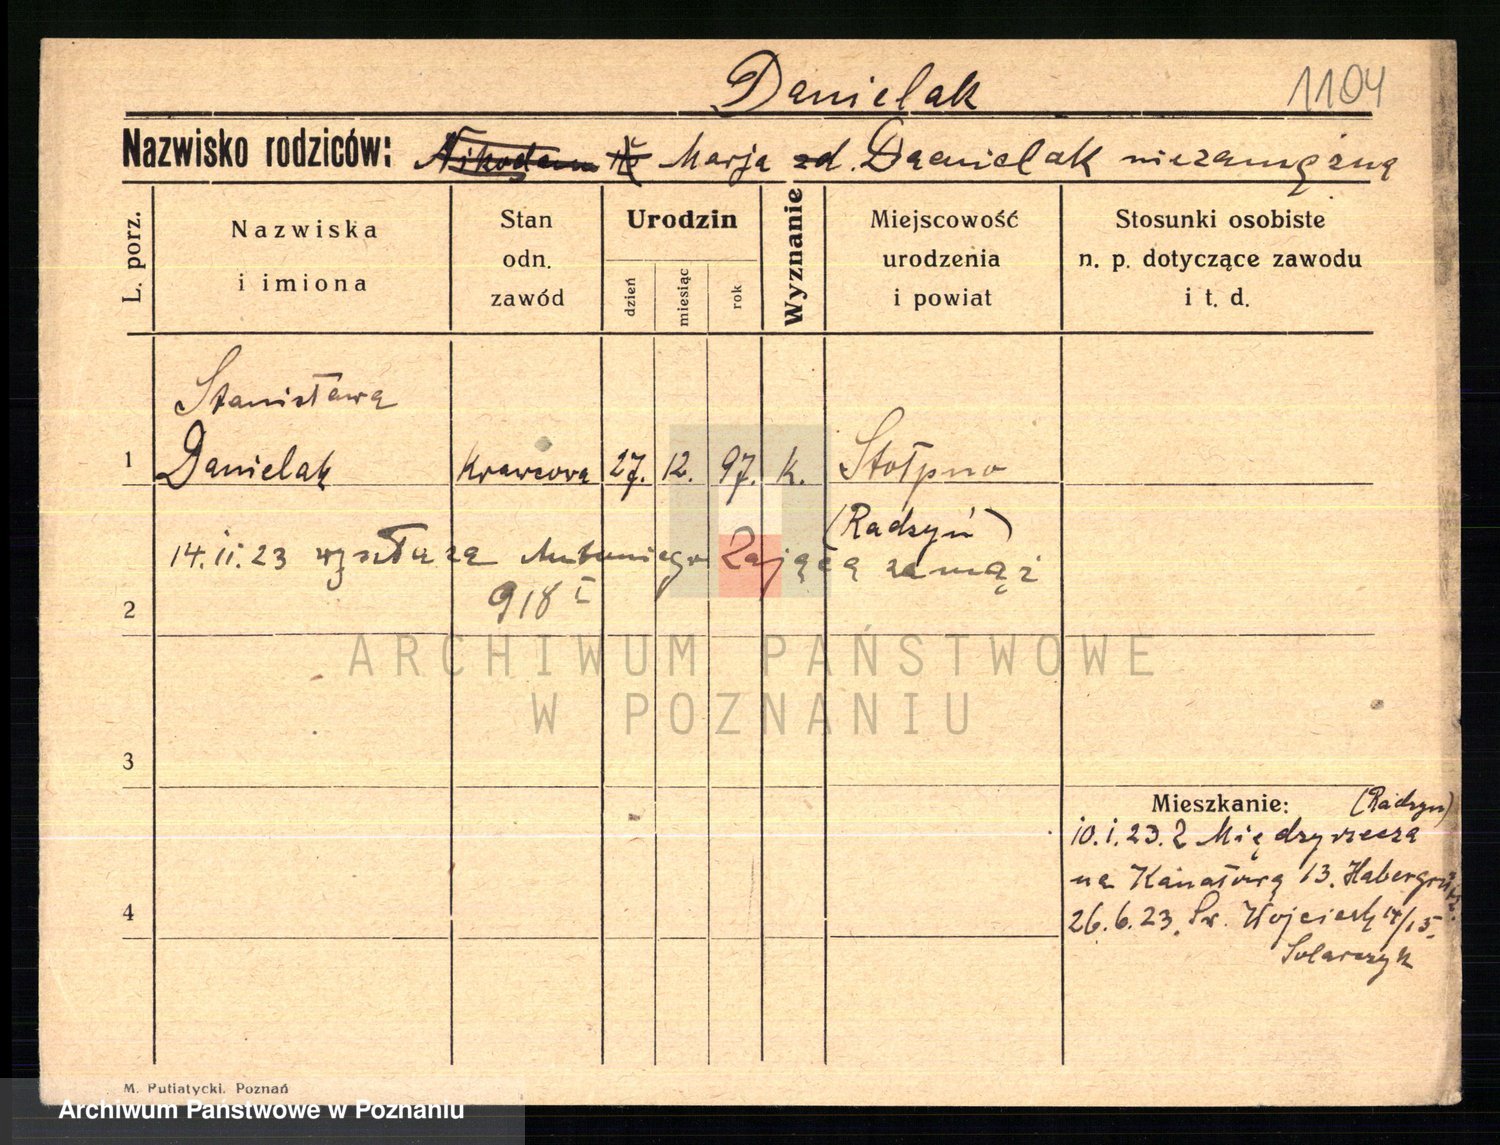 Danielak
1104
Nazwisko rodziców: Nikodem Marja zd. Danielak niezamężna
L. porz.
Nazwiska
i imiona
Stan
odn.
zawód
Urodzin
dzień
miesiąc
rok
Wyznanie
Miejscowość
urodzenia
i powiat
Stosunki osobiste
n. p. dotyczące zawodu
i t. d.
Stanisława
1 Danielak Krawcowa 27. 12. 97. k. Stołpno
(Radzyń)
14.11.23 wyszła za Antoniego Zająca za mąż
918 I
2
ARCHIWUM PAŃSTWOWE
W POZNANIU
3
Mieszkanie: (Radzyn)
10.1.23. z Międzyrzecza
na Kanałową 13.
4
26.6.23. Św. Wojciech 14/15.
Solarczyk
M. Putiatycki. Poznań
Archiwum Państwowe w Poznaniu